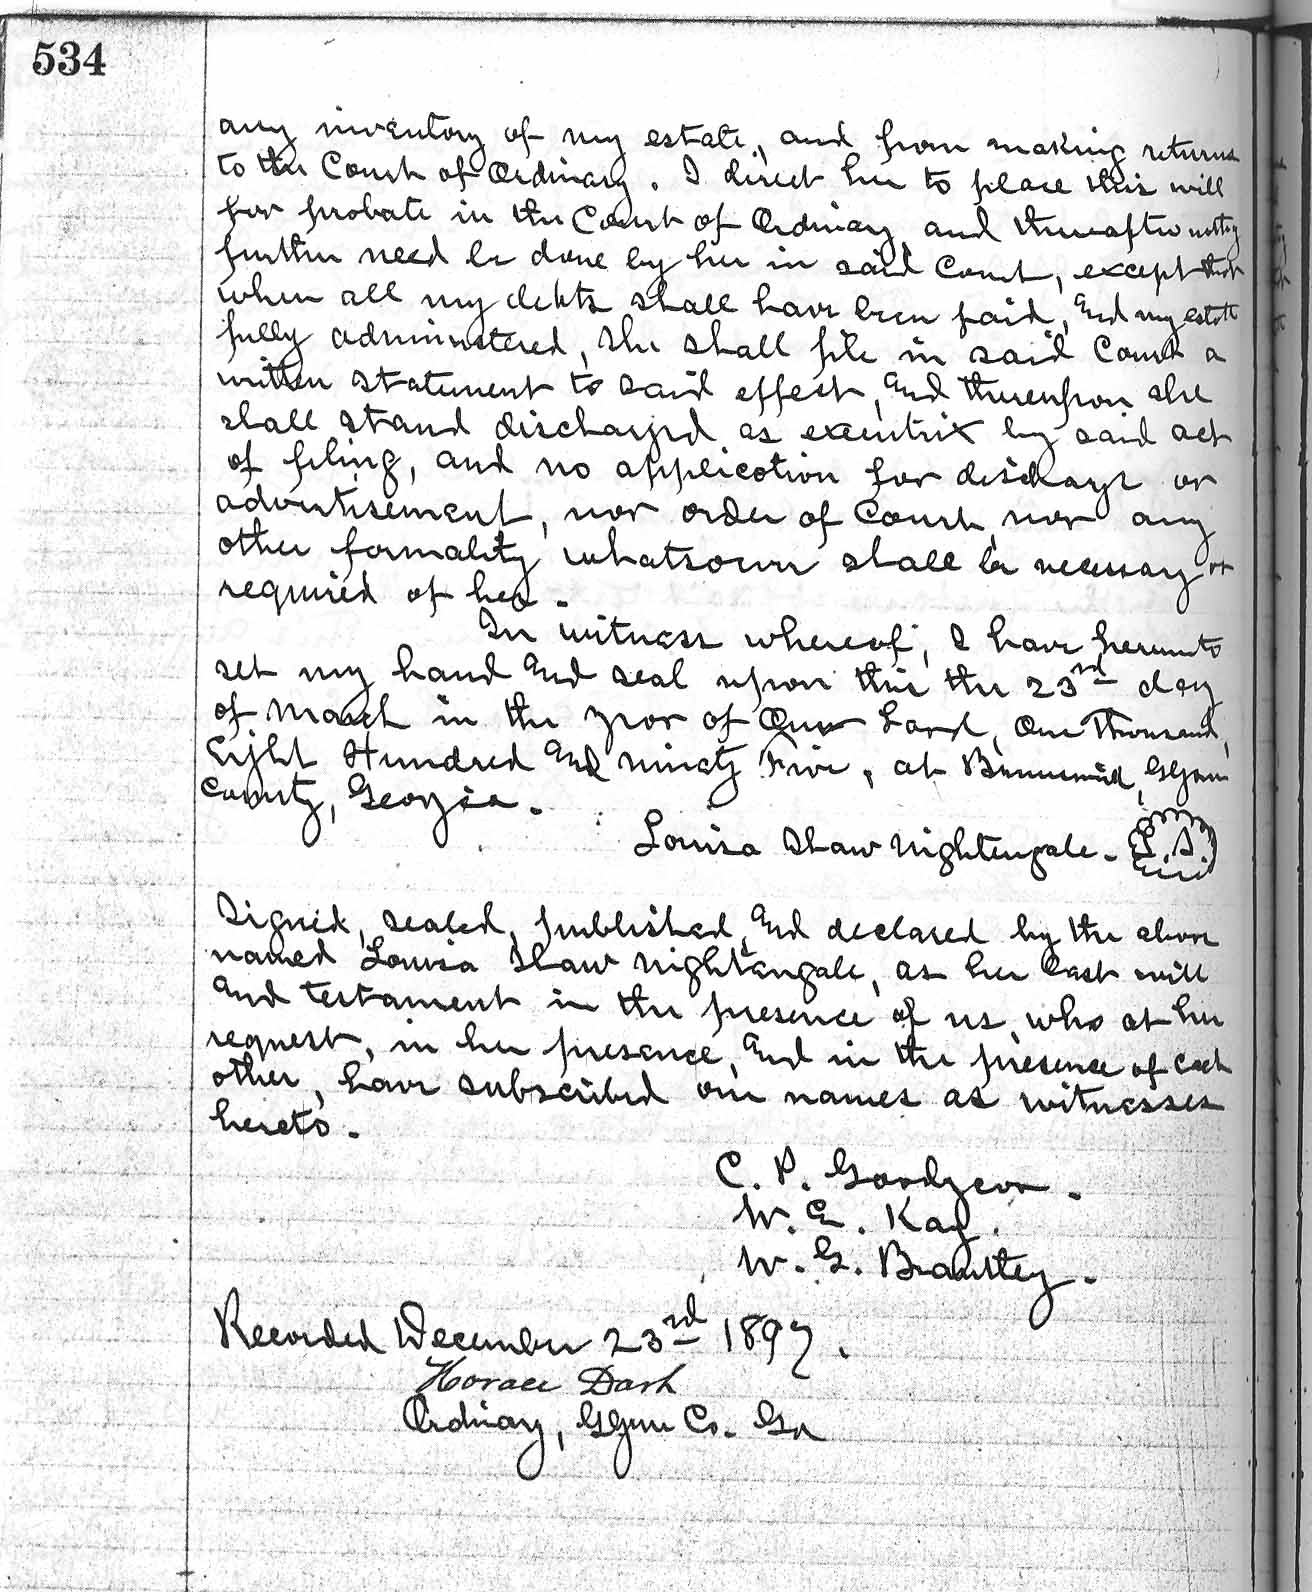 534
any inventory of my estate, and from making returns
to the Court of Ordinary. I direct her to place this will
for probate in the Court of Ordinary, and thereafter nothing
further need be done by her in said Court, except that
when all my debts shall have been paid, and my estate
fully administered, she shall file in said Court a
written statement to said effect, and thereupon she
shall stand discharged as executrix by said act
of filing, and no application for discharge or
advertisement, nor order of Court nor any
other formality whatsoever shall be necessary or
required of her.
In witness whereof, I have hereunto
set my hand and seal upon this the 23rd day
of March in the year of Our Lord, One Thousand,
Eight Hundred and Ninety Five, at Brunswick, Glynn
County, Georgia.
Louisa Shaw Nightengale. L.S.
Signed, sealed, published, and declared by the above
named Louisa Shaw Nightengale, as her last will
and testament in the presence of us, who at her
request, in her presence, and in the presence of each
other, have subscribed our names as witnesses
hereto.
C. P. Goodyear.
W. E. Kay.
W. G. Brantley.
Recorded December 23rd 1897.
Horace Dart
Ordinary, Glynn Co. Ga